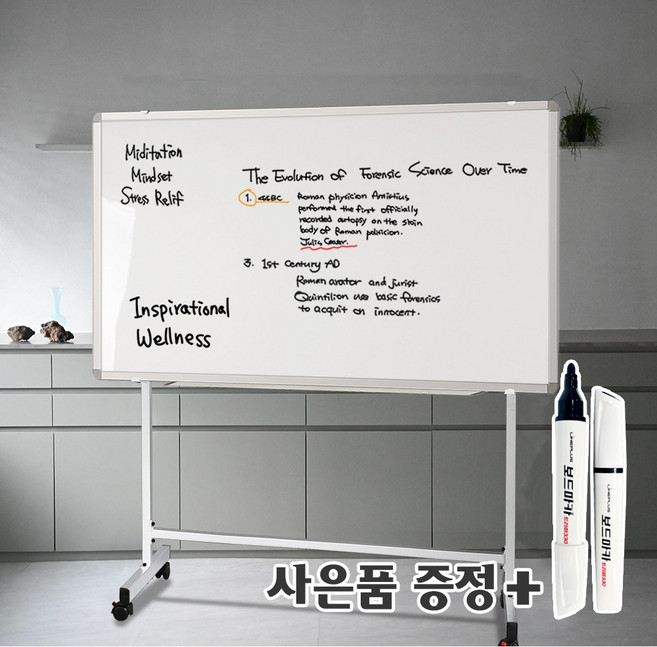 Miditation
Mindset
Stress Relif
Inspirational
Wellness
The Evolution of Forensic Science Over Time
1. 44BC
Roman physician Amistius
performed the first officially
recorded autopsy on the skin
body of Roman polision.
3. 1st Century AD
Roman orator and jurist
Quintilion use basic forensics
to acquit an innocent.
LINEPLUS 보드마카
LINEPLUS 보드마카
사은품 증정+